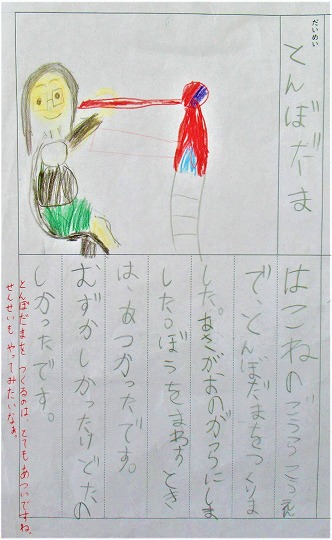 だいめい
とんぼだま
はこねのごうらこうえん
で、とんぼだまをつくりま
した。あさがおのがらにしま
した。ぼうをまわすとき
は、あつかったです。
むずかしかったけど、たの
しかったです。
とんぼだまを つくるのは、とてもあついですね。
せんせいも やってみたいなぁ。